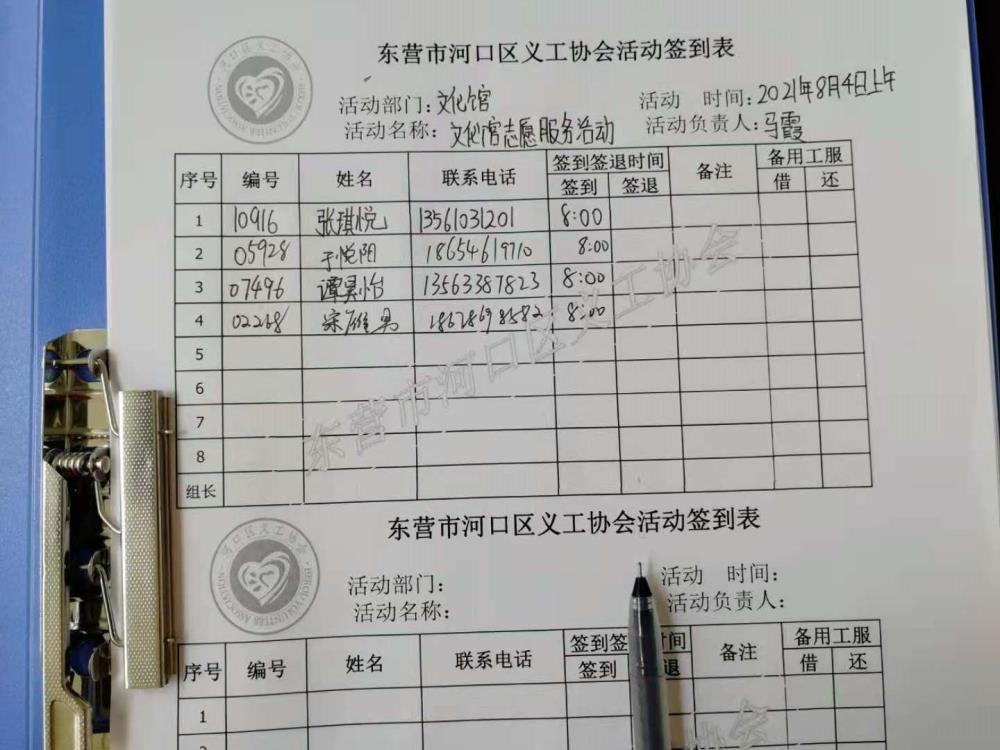 东营市河口区义工协会活动签到表
活动部门：文化馆 活动 时间：2021年8月4日上午
活动名称： 文化馆志愿服务活动 活动负责人：马霞
序号 编号 姓名 联系电话 签到签退时间 备注 备用工服
签到 签退 借 还
1 10916 张琪悦 13561031201 8:00
2 05928 于悦阳 18654619710 8:00
3 07496 谭昊怡 13563387823 8:00
4 02268 8:00
5
6
7
8
组长
东营市河口区义工协会
东营市河口区义工协会活动签到表
活动部门： 活动 时间：
活动名称： 活动负责人：
序号 编号 姓名 联系电话 签到签 时间 备注 备用工服
签到 退 借 还
1
协会
河口区义工协会
HEKOU VOLUNTEER ASSOCIATION